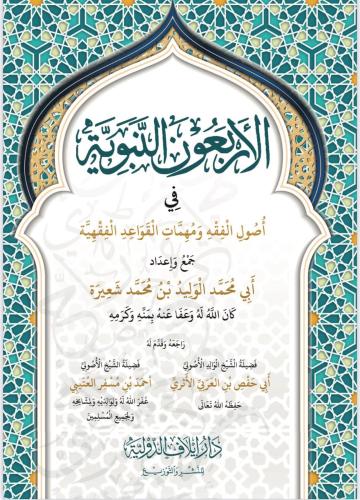 الأربعون النبوية
في
أُصُولِ الْفِقْهِ وَمُهِمَّاتِ الْقَوَاعِدِ الْفِقْهِيَّة
جَمْعُ وَإِعْدَاد
أَبِي مُحَمَّد الْوَلِيد بْنُ مُحَمَّد شَعِيرَة
كَانَ اللهُ لَهُ وَعَفَا عَنْهُ بِمَنِّهِ وَكَرَمِهِ
رَاجَعَهُ وَقَدَّمَ لَهُ
فَضِيلَةُ الشَّيْخِ الْوَالِدِ الْأُصُولِيِّ
أَبِي حَفْصِ بْنِ الْعَرَبِيِّ الْأَثَرِيِّ
حَفِظَهُ اللهُ تَعَالَى
فَضِيلَةُ الشَّيْخِ الْأُصُولِيِّ
أَحْمَدَ بْنِ مُسْفِرٍ الْعُتَيْبِيِّ
غَفَرَ اللهُ لَهُ وَلِوَالِدَيْهِ وَلِمَشَايِخِهِ
وَلِجَمِيعِ الْمُسْلِمِينَ
دار إيلاف الدولية
للنشر والتوزيع